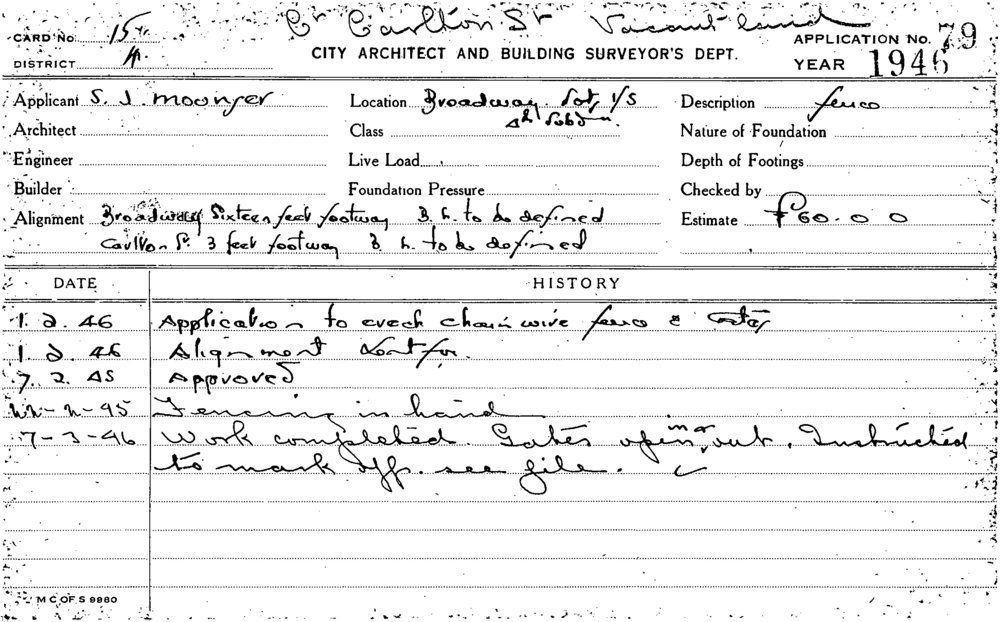 Cr Carlton St Vacant land
CARD No. 15
APPLICATION No. 79
CITY ARCHITECT AND BUILDING SURVEYOR'S DEPT.
DISTRICT A.
YEAR 1946
Applicant S. J. Location Broadway Lot 1/S Description fence
Architect Class Subdn. Nature of Foundation
Engineer Live Load Depth of Footings
Builder Foundation Pressure Checked by
Alignment Broadway Sixteen feet footway B. L. to be defined Estimate £60.0.0
Carlton St. 3 feet footway B. L. to be defined
DATE HISTORY
1. 2. 46 Application to erect chain wire fence & Gates
1. 2. 46 Alignment sent for.
7. 2. 45 Approved
Fencing in hand
7-3-46 Work completed. Gates opening out. Instructed
to mark off. see file.
M C OF S 9980